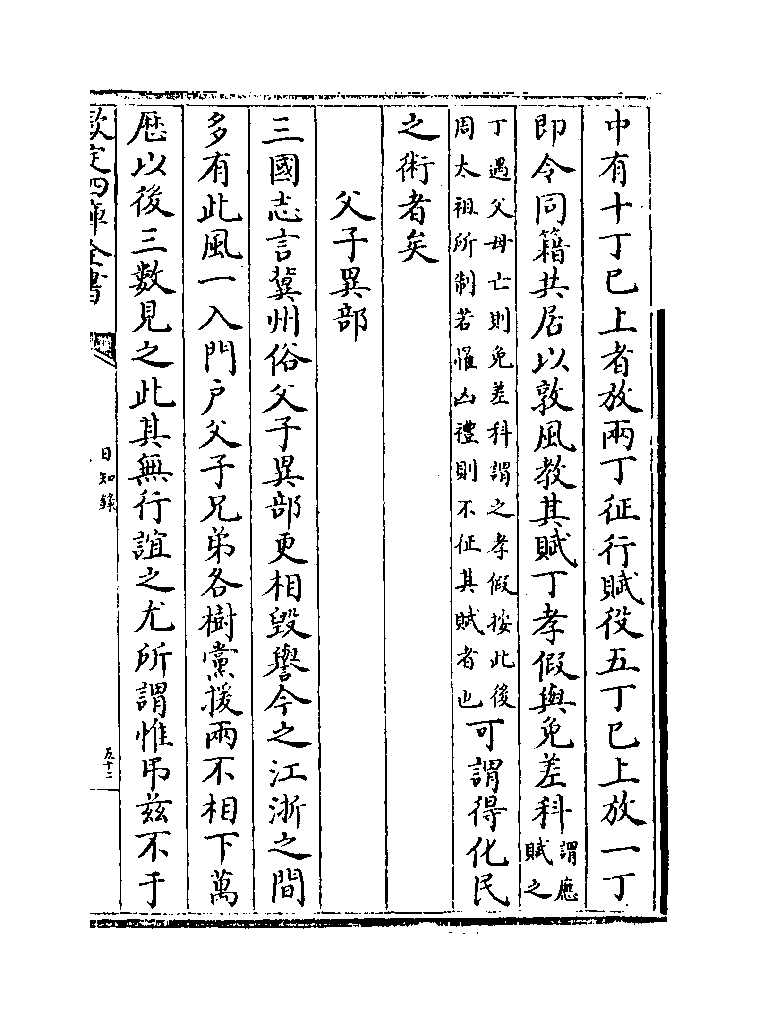 中有十丁已上者放兩丁征行賦役五丁已上放一丁
即令同籍共居以敦風教其賦丁孝假與免差科謂應賦之
丁遇父母亡則免差科謂之孝假按此後周太祖所制若罹凶禮則不征其賦者也可謂得化民
之術者矣
父子異部
三國志言冀州俗父子異部更相毀譽今之江浙之間
多有此風一入門户父子兄弟各樹黨援兩不相下萬
厯以後三數見之此其無行誼之尤所謂惟弔兹不于
欽定四庫全書
日知錄
五十二